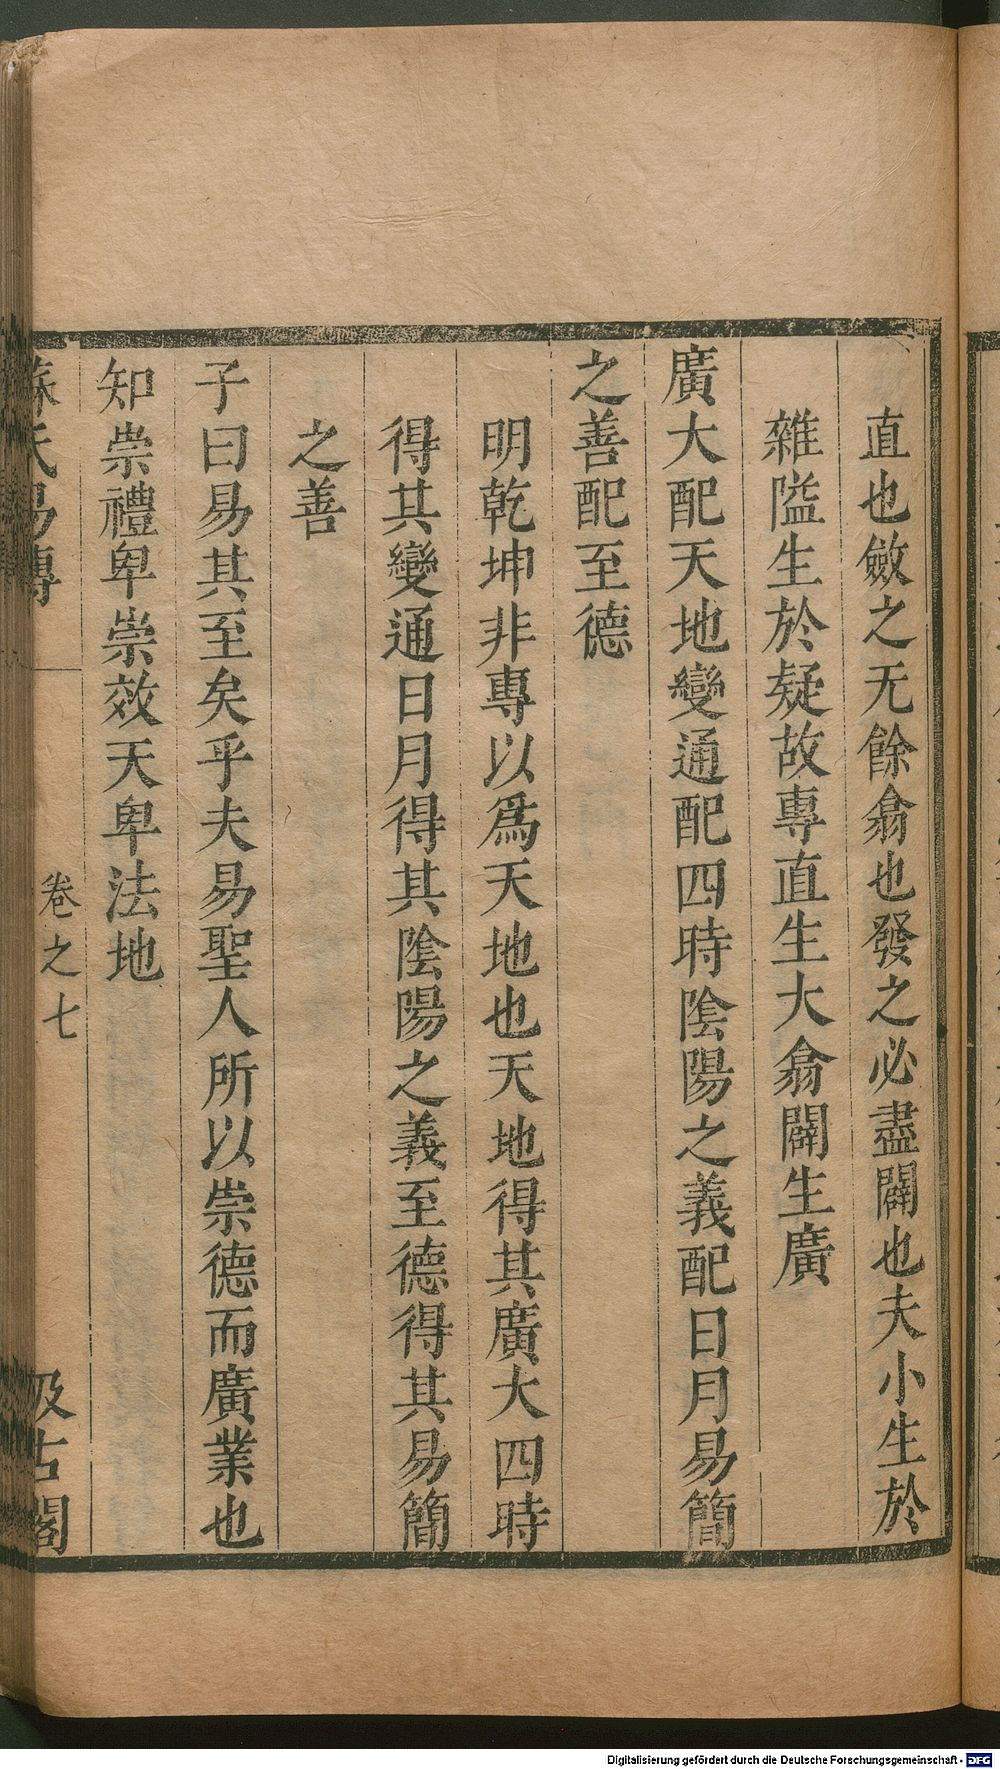 直也斂之无餘翕也發之必盡闢也夫小生於
雜隘生於疑故專直生大翕闢生廣
廣大配天地變通配四時陰陽之義配日月易簡
之善配至德
明乾坤非專以爲天地也天地得其廣大四時
得其變通日月得其陰陽之義至德得其易簡
之善
子曰易其至矣乎夫易聖人所以崇德而廣業也
知崇禮卑崇效天卑法地
蘇氏易傳
卷之七
汲古閣
Digitalisierung gefördert durch die Deutsche Forschungsgemeinschaft - DFG